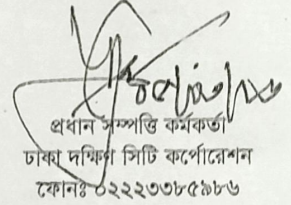 প্রধান সম্পত্তি কর্মকর্তা
ঢাকা দক্ষিণ সিটি কর্পোরেশন
ফোনঃ ০২২২৩৩৮৫৯৮৬